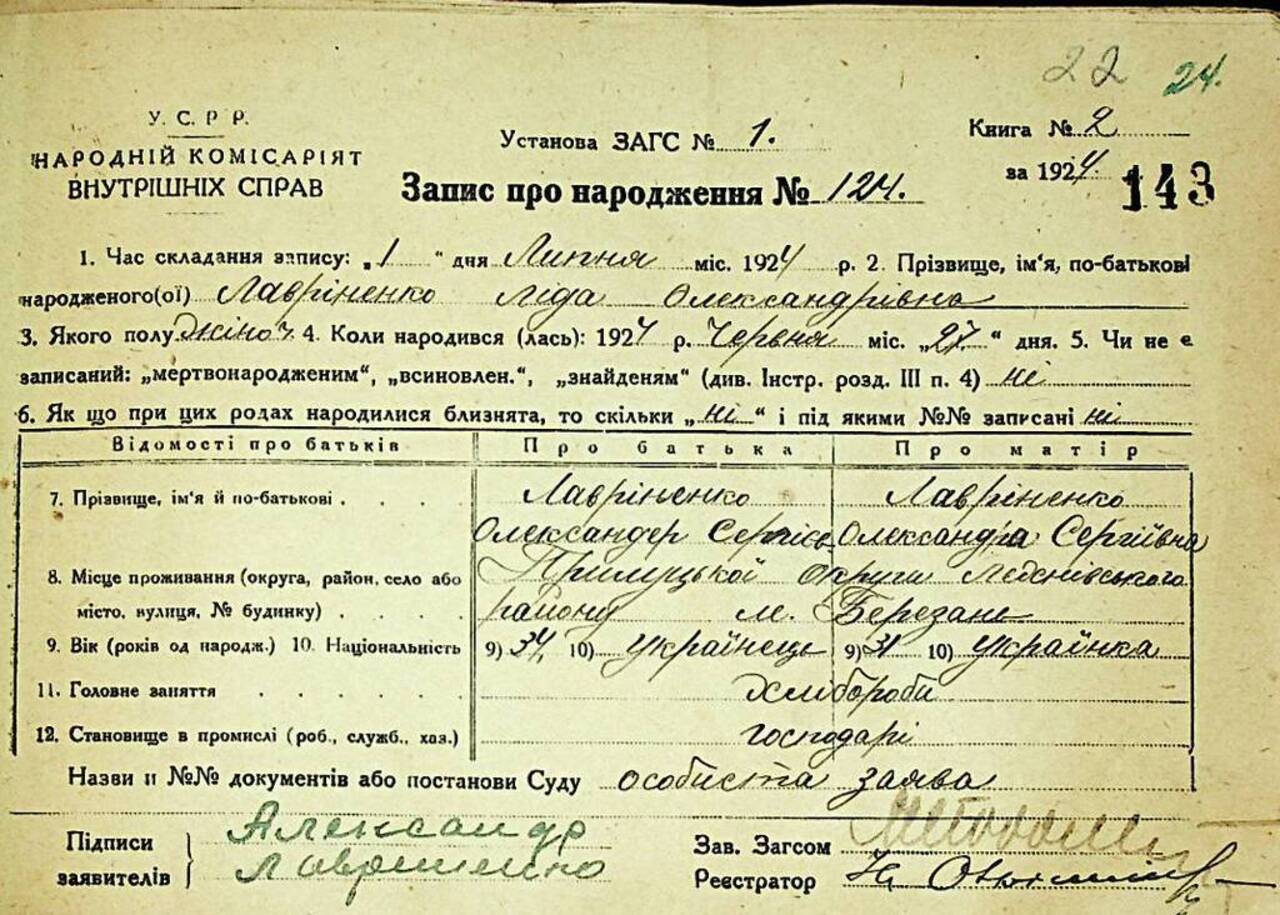 22 24.
У. С. Р Р.
НАРОДНІЙ КОМІСАРІЯТ
ВНУТРІШНІХ СПРАВ
Установа ЗАГС № 1.
Книга № 2
за 1924.
143
Запис про народження № 124.
1. Час складання запису: „1 " дня Липня міс. 1924 р. 2. Прізвище, ім'я, по-батькові
народженого(ої) Лавріненко Ліда Олександрівна
3. Якого полу жіноч. 4. Коли народився (лась): 1924 р. Червня міс. „27." дня. 5. Чи не є
записаний: „мертвонародженим", „всиновлен.", „знайденям" (див. Інстр. розд. III п. 4) ні
6. Як що при цих родах народилися близнята, то скільки „ні" і під якими №№ записані ні
Відомості про батьків Про батька Про матір
7. Прізвище, ім'я й по-батькові . . . . Лавріненко Лавріненко
Олександер Олександра Сергіївна
8. Місце проживання (округа, район, село або Прилуцької округи
місто, вулиця, № будинку) . . . . району м. Березань
9. Вік (років од народж.) 10. Національність 9) 34. 10) Українець 9) 31 10) Українка
11. Головне заняття . . . . . хлібороби
12. Становище в промислі (роб., служб., хаз.) господарі
Назви и №№ документів або постанови Суду особиста заява
Підписи
заявителів
Александр
Лавриненко
Зав. Загсом
Реєстратор